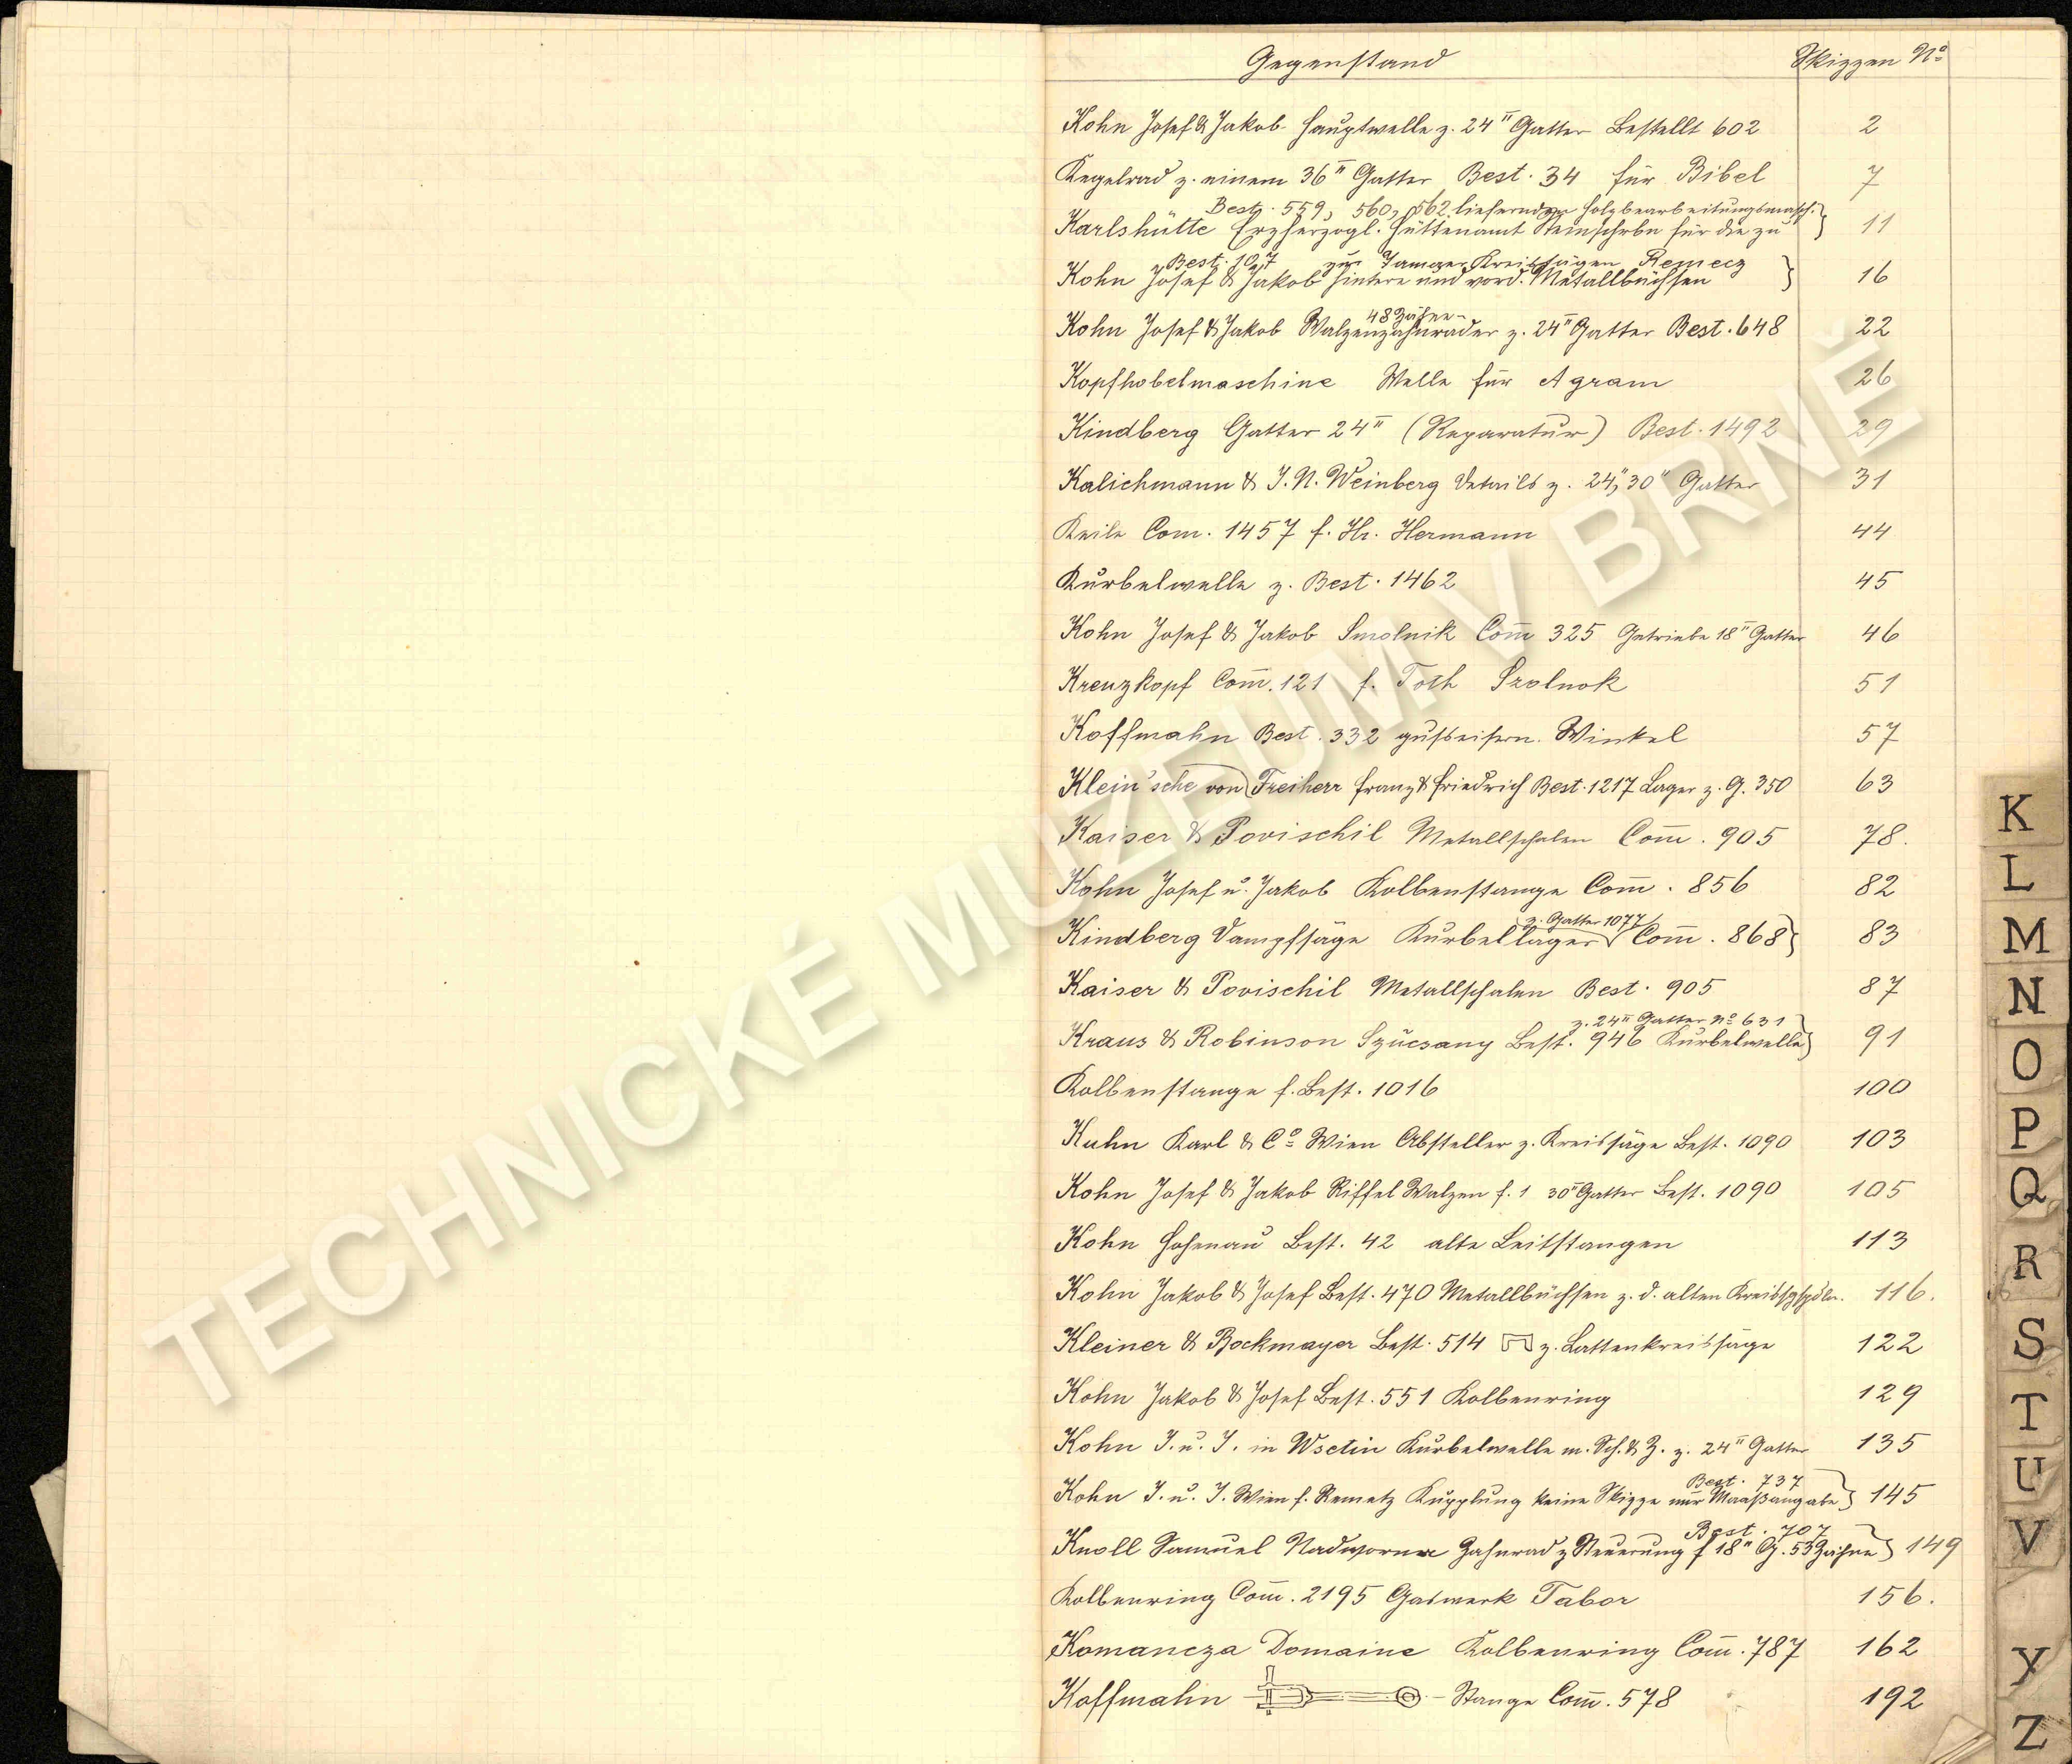 Gegenstand Skizzen No
Kohn Josef & Jakob Hauptwelle z. 24" Gatter Bestellt 602 2
Kegelrad z. einem 36" Gatter Best. 34 für Bibel 7
Best. 559, 560, 562 liefernden Holzbearbeitungsmasch.
Karlshütte Erzherzogl. Hüttenamt für die zu 11
Best. 107 zur Kreissägen Remecz
Kohn Josef & Jakob hintere und vord. Metallbüchsen 16
48 Zähne
Kohn Josef & Jakob Walzenzahnräder z. 24" Gatter Best. 648 22
Kopfhobelmaschine Welle für Agram 26
Kindberg Gatter 24" (Reparatur) Best. 1492 29
Kalichmann & J. N. Weinberg Details z. 24", 30" Gatter 31
Keile Com. 1457 f. Hr. Hermann 44
Kurbelwelle z. Best. 1462 45
Kohn Josef & Jakob Smolnik Com̅ 325 Getriebe 18" Gatter 46
Kreuzkopf Com̅. 121 f. Toth Szolnok 51
Koffmahn Best. 332 gußeisern. Winkel 57
Klein'sche von Freiherr Franz & Friedrich Best. 1217 Lager z. G. 350 63
Kaiser & Povischil Metallschalen Com̅. 905 78.
Kohn Josef u. Jakob Kolbenstange Com̅. 856 82
z. Gatter 1077
Kindberg Dampfsäge Kurbellager Com̅. 868 83
Kaiser & Povischil Metallschalen Best. 905 87
z. 24" Gatter No 631
Kraus & Robinson Szücsany Best. 946 Kurbelwelle 91
Kolbenstange f. Best. 1016 100
Kuhn Karl & Co Wien Absteller z. Kreissäge Best. 1090 103
Kohn Josef & Jakob Riffel Walzen f. 1 30" Gatter Best. 1090 105
Kohn Hohenau Best. 42 alte Leitstangen 113
Kohn Jakob & Josef Best. 470 Metallbüchsen z. d. alten 116.
Kleiner & Bockmayer Best. 514 z. Lattenkreissäge 122
Kohn Jakob & Josef Best. 551 Kolbenring 129
Kohn J. u. J. in Wsetin Kurbelwelle m. Sch. & Z. z. 24" Gatter 135
Best. 737
Kohn J. u. J. Wien f. Remetz Kupplung keine Skizze nur Maaßangabe 145
Best. 707
Knoll Samuel Nadworna Zahnrad z Steuerung f 18" G. 53 Zähne 149
Kolbenring Com̅. 2195 Gaswerk Tabor 156.
Komancza Domaine Kolbenring Com̅. 787 162
Koffmahn Stange Com̅. 578 192
K
L
M
N
O
P
Q
R
S
T
U
V
Y
Z
TECHNICKÉ MUZEUM V BRNĚ